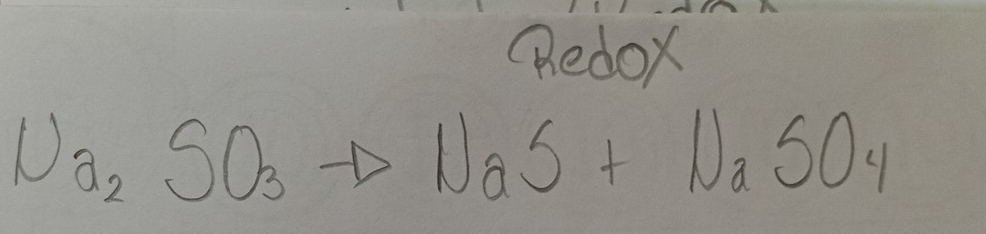 Redox
Na₂ SO₃ → NaS + Na SO₄